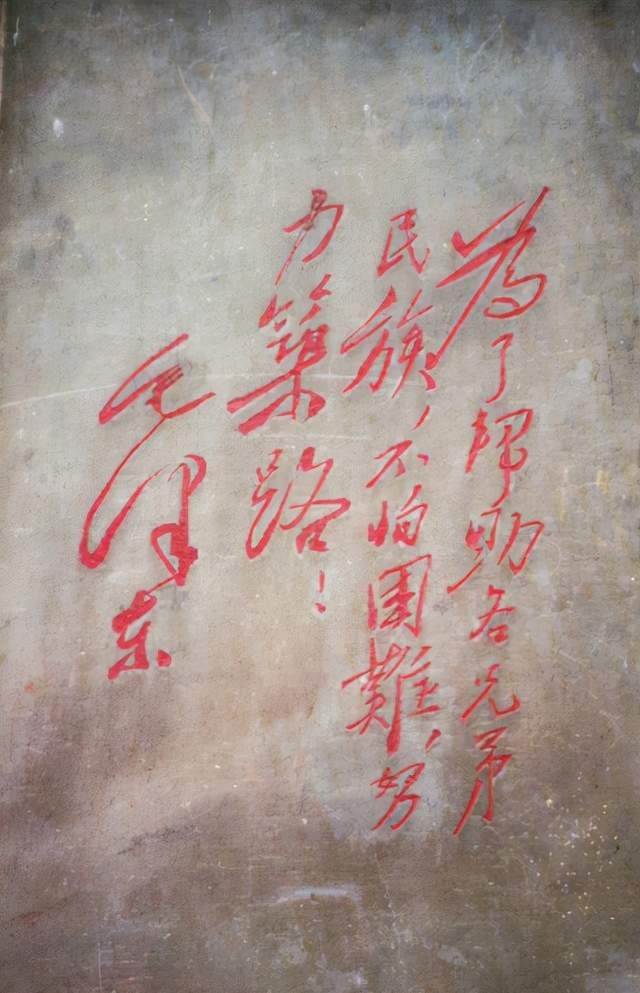 為了帮助各兄弟
民族,不怕困難,努
力築路!
毛泽东